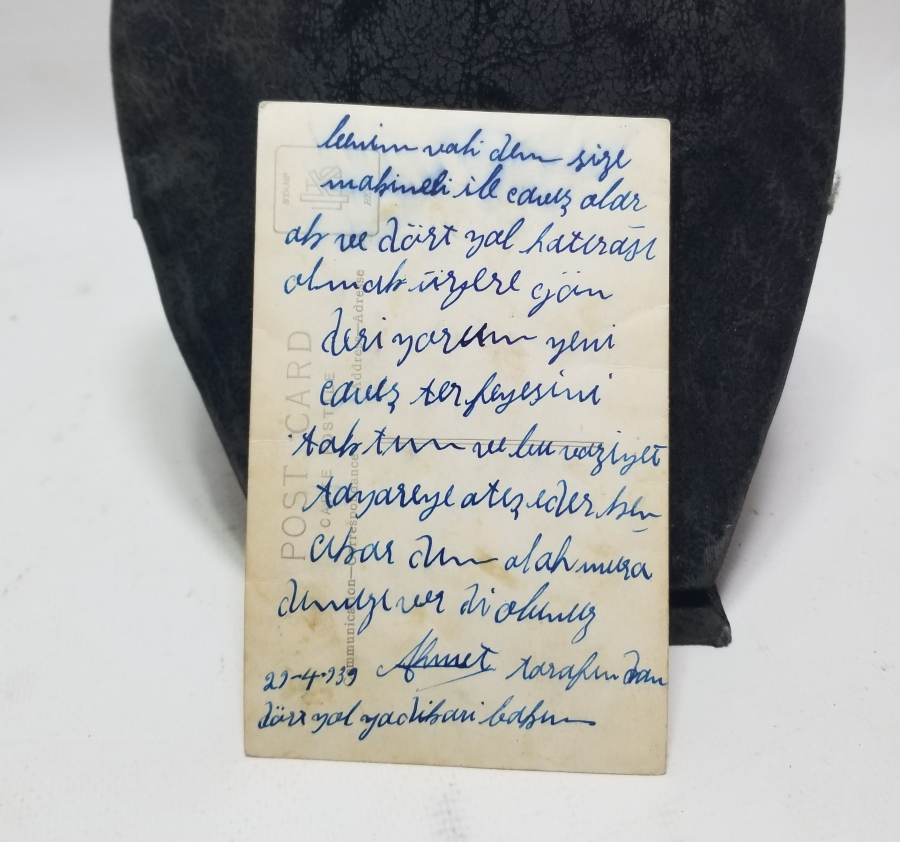 benim vali dem size
makineli ile cavuş olar
ak ve dört yol hatırası
olmak üzere gön
deri yorum yeni
cavuş terfeyesini
taktum ve bu vaziyet
tayareye ateş eder ken
cıkar dum alah mura
dunuzı ver di olunuz
29-4-939 Ahmet tarafun dan
dört yol yadikari bakun
POST CARD
CARTE POSTALE
Communication—Correspondance
Address—Adresse
STAMP
HERE